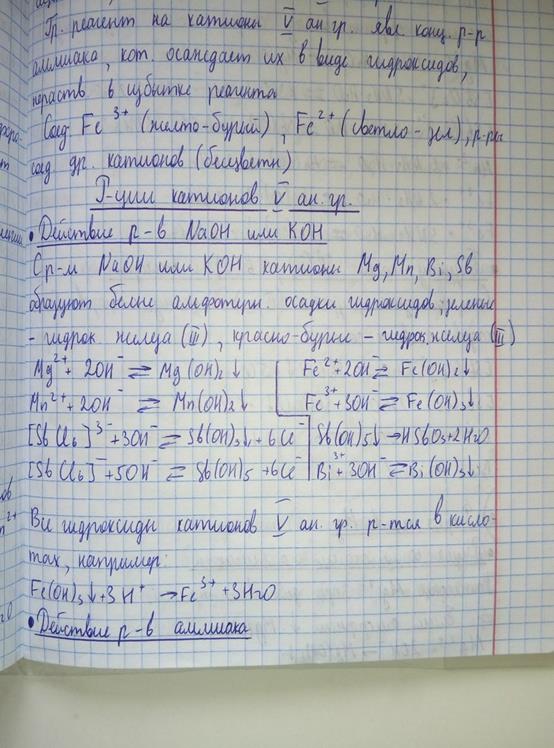 Гр. реагент на катионы V ан. гр. явл. конц. р-р
аммиака, кот. осаждает их в виде гидроксидов,
нераств. в избытке реагента
Соед. Fe³⁺ (желто-бурый), Fe²⁺ (светло-зел), р-ры
соед. др. катионов (бесцветн)
Р-ции катионов V ан. гр.
• Действие р-в NaOH или KOH
С р-м NaOH или KOH катионы Mg, Mn, Bi, Sb
образуют белые аморфотерн. осадки гидроксидов; зеленые
- гидрок. железа (III), красно-бурые - гидрок. железа (III)
Mg²⁺ + 2OH⁻ ⇄ Mg(OH)₂↓ Fe²⁺ + 2OH⁻ ⇄ Fe(OH)₂↓
Mn²⁺ + 2OH⁻ ⇄ Mn(OH)₂↓ Fe³⁺ + 3OH⁻ ⇄ Fe(OH)₃↓
[SbCl₆]³⁻ + 3OH⁻ ⇄ Sb(OH)₃↓ + 6Cl⁻ Sb(OH)₅↓ → HSbO₃ + 2H₂O
[SbCl₆]⁻ + 5OH⁻ ⇄ Sb(OH)₅ + 6Cl⁻ Bi³⁺ + 3OH⁻ ⇄ Bi(OH)₃↓
Все гидроксиды катионов V ан. гр. р-тся в кисло-
тах, например:
Fe(OH)₃↓ + 3H⁺ → Fe³⁺ + 3H₂O
• Действие р-в аммиака